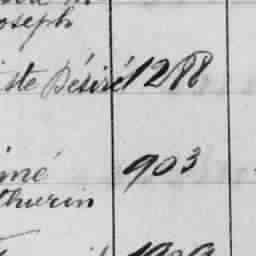 oseph
ste Désiré 1288
imé 903
thurin